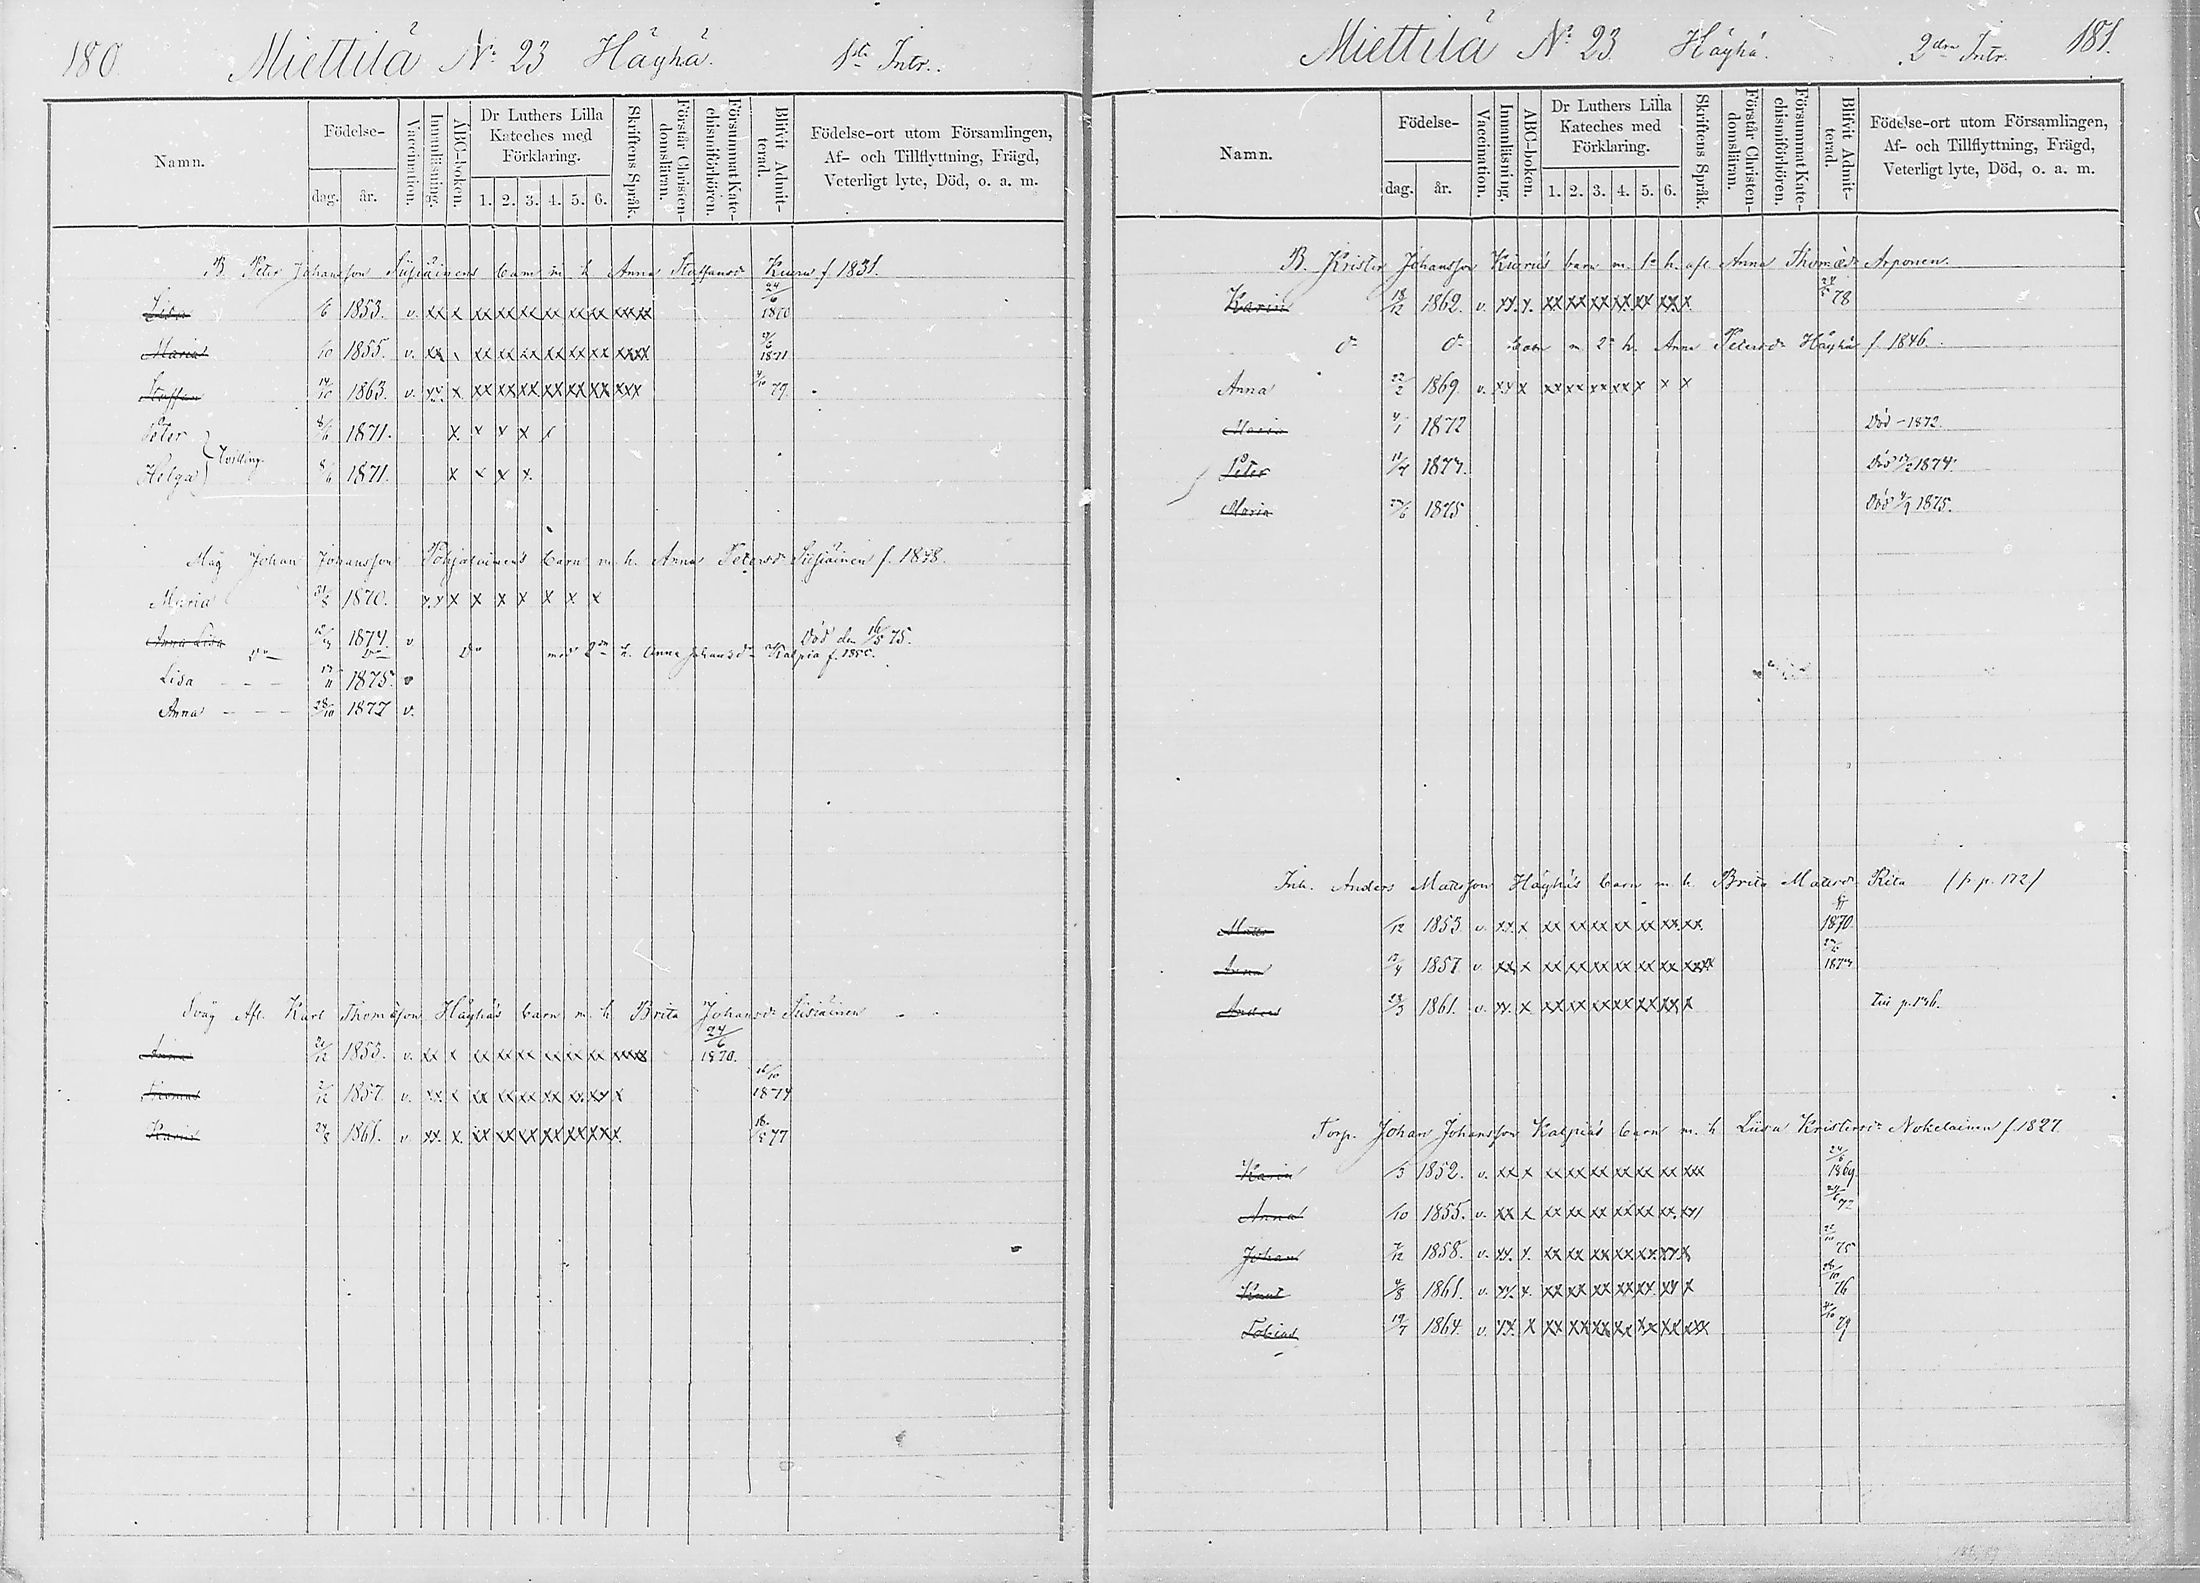 180. Miettilä No 23 Häyhä. 1sta Intr.
Namn.
Födelse-
dag. år.
Vaccination.
Innanläsning.
ABC-boken.
Dr Luthers Lilla Kateches med Förklaring.
1. 2. 3. 4. 5. 6.
Skriftens Språk.
Förstår Christen-domsläran.
Försummat Kate-chismiförhören.
Blifvit Admit-terad.
Födelse-ort utom Församlingen, Af- och Tillflyttning, Frägd, Veterligt lyte, Död, o. a. m.
B. Peter Johansson Susiainens barn m. h. Anna Staffansdr Kiuru f. 1831.
Lisa /6 1853. v. xx x xx xx xx xx xx xx xxxx 24/6 1870
Maria /10 1855. v. xx x xx xx xx xx xx xx xxxx 1871
Staffan 14/10 1863. v. xx. x xx xx xx xx xx xx xxx 79.
Peter 8/6 1871. x. x x x x
Tvilling
Helga 8/6 1871. x x x x.
Måg Johan Johansson Pohjalainens barn m. h. Anna Petersdr Susiainen f. 1848.
Maria 1870. xx x x x x x x. x
Anna Lisa 1874. v Död den 16/5 75.
Do Do Do med 2dra h. Anna Johansdr Kalpia f. 1855.
Lisa - - - 17/11 1875. v
Anna - - - 28/10 1877 v.
Svåg Afl. Karl Thomasson Häyhäs barn m. h. Brita Johansdr Susiainen
Anna 21/12 1853. v. xx x xx xx xx xx xx xx xxxx 24/6 1870.
Thomas 2/12 1857. v. xx. x xx xx xx xx xx xx x 16/10 1874
Karin 24/8 1861. v. xx. x. xx xx xx xx xx xx x. 18/5 77
Miettilä No 23 Häyhä. 2dra Intr. 181.
Namn.
Födelse-
dag. år.
Vaccination.
Innanläsning.
ABC-boken.
Dr Luthers Lilla Kateches med Förklaring.
1. 2. 3. 4. 5. 6.
Skriftens Språk.
Förstår Christen-domsläran.
Försummat Kate-chismiförhören.
Blifvit Admit-terad.
Födelse-ort utom Församlingen, Af- och Tillflyttning, Frägd, Veterligt lyte, Död, o. a. m.
B. Krister Johansson Kiurus barn m. 1a h. afl. Anna Thomædr Arponen.
Karin 18/12 1862. v. xx. x. xx. xx xx xx xx xx. x. 78
do do barn m. 2a h. Anna Petersdr Häyhä f. 1846.
Anna 22/2 1869. v. xx x xx xx xx xx x x x
Maria 4/1 1872 Död - 1872.
Peter 11/4 1874. Död 1874.
Maria 1875 Död 4/9 1875.
Inh. Anders Mattsson Häyhäs barn m. h. Brita Mattsdr Rita (fr p. 172)
Matts /12 1853 v. xx. x xx xx xx xx xx xx. xx. 1870.
Anna 17/4 1857 v. xx. x xx xx xx xx xx xx xxxx 1874
Anders 28/3 1861. v. xx. x xx xx xx xx xx xx x Till p. 176.
Torp. Johan Johansson Kalpias barn m. h. Liisa Kristersdr Nokelainen f. 1827
Karin /5 1852. v. xx x xx xx xx xx xx xx xxx 24/6 1869
Anna /10 1855. v. xx x xx xx xx xx xx xx. 72
Johan 7/12 1858. v. xx. x. xx xx xx xx xx. xx x 75
Knut 4/8 1861. v. xx. x. xx xx xx xx xx. xx x 76
Tobias 19/7 1864. v. xx. x xx xx xx xx xx xx xxx 79